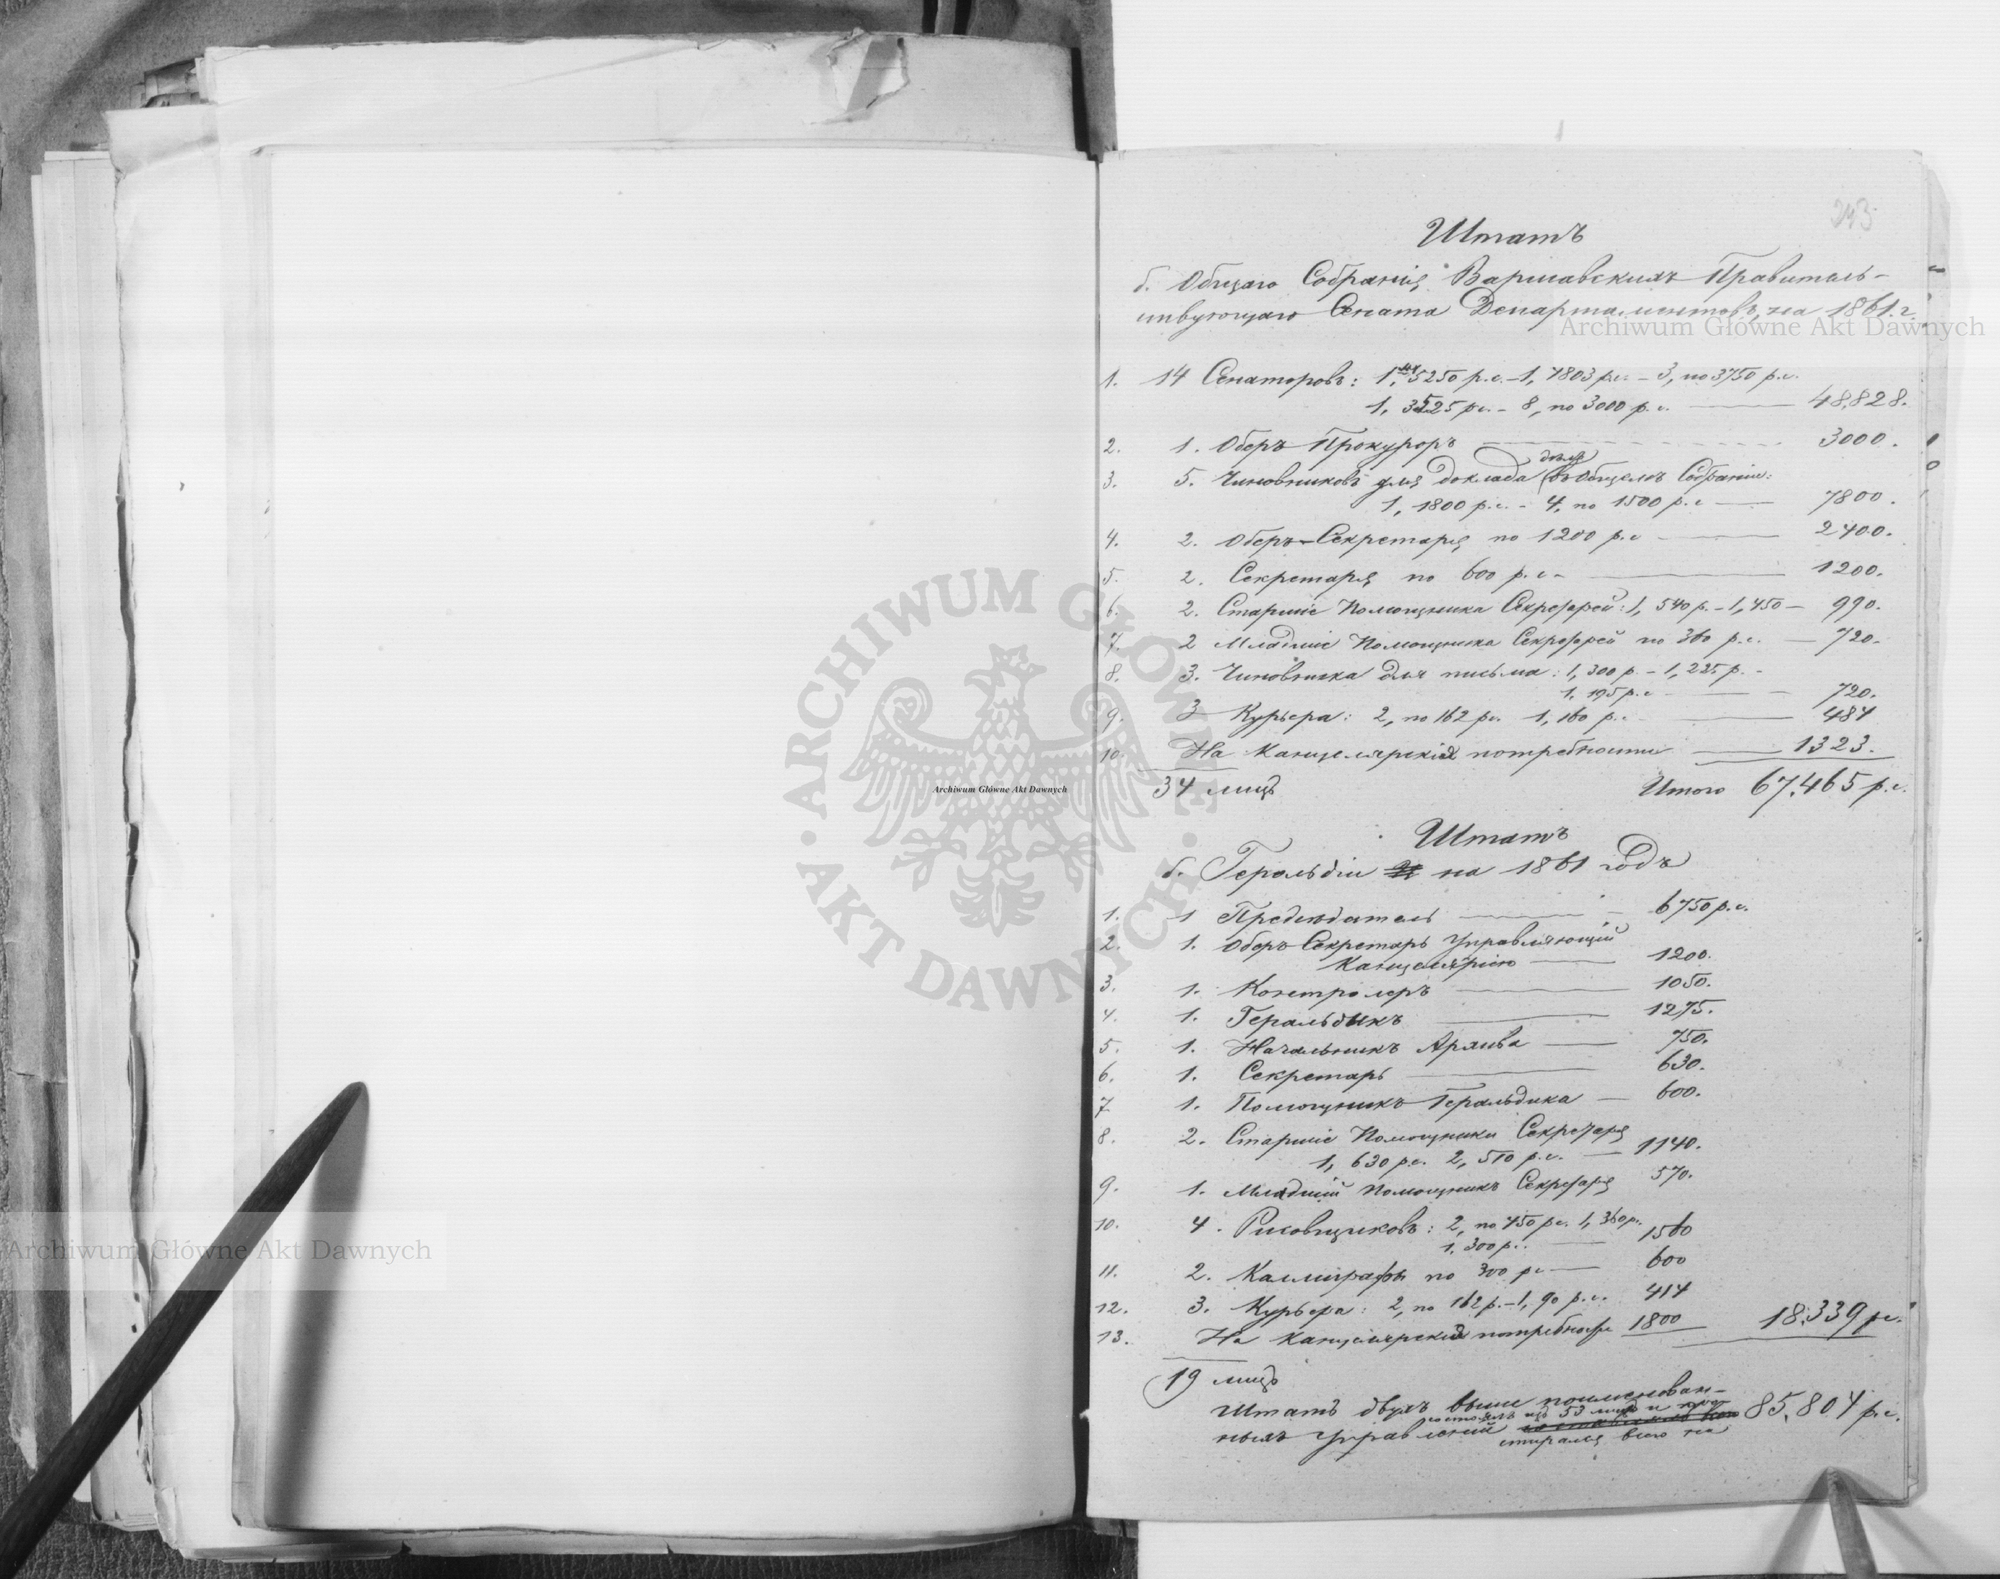 243
Штатъ
б. Общаго Собранія Варшавскихъ Правитель-
ствующаго Сената Департаментовъ, на 1861 г.
1. 14 Сенаторовъ: 1, 5250 р.с. – 1, 4803 р.с. – 3, по 3750 р.с.
1, 3525 р.с. – 8, по 3000 р.с. — 48,828.
2. 1. Оберъ Прокуроръ — 3000.
3. 5. Чиновниковъ для доклада дѣлъ въ Общемъ Собраніи:
1, 1800 р.с. – 4, по 1500 р.с — 7800.
4. 2. Оберъ-Секретаря по 1200 р.с — 2400.
5. 2. Секретаря по 600 р.с. — 1200.
6. 2. Старшіе Помощника Секретарей: 1, 540 р. – 1, 450 — 990.
7. 2 Младшіе Помощника Секретарей по 360 р.с. — 720.
8. 3. Чиновника для письма: 1, 300 р. – 1, 225 р. –
1. 195 р.с — 720.
9. 3 Курьера: 2, по 162 р.с. 1, 160 р.с. — 484
10. На Канцелярскія потребности — 1323.
34 лицъ Итого 67,465 р.с.
Штатъ
б. Герольдіи на 1861 годъ
1. 1 Предсѣдатель — 6750 р.с.
2. 1. Оберъ-Секретарь Управляющій
Канцеляріею — 1200.
3. 1. Контролеръ — 1050.
4. 1. Геральдикъ — 1275.
5. 1. Начальникъ Архива — 750.
6. 1. Секретарь — 630.
7 1. Помощникъ Геральдика — 600.
8. 2. Старшіе Помощники Секретаря
1, 630 р.с. 2, 510 р.с. — 1140.
9. 1. Младшій Помощникъ Секретаря 570.
10. 4. Рисовщиковъ: 2, по 450 р.с. 1, 360 р.
1. 300 р.с. — 1560
11. 2. Каллиграфы по 300 р.с — 600
12. 3. Курьера: 2, по 162 р. – 1, 90 р.с. 414
13. На Канцелярскія потребности 1800 18.339 р.с.
19 лицъ
Штатъ двухъ выше поименован-
ныхъ Управленій состоялъ изъ 53 лицъ и про-
стирался всего на 85,804 р.с.
Archiwum Główne Akt Dawnych
Archiwum Główne Akt Dawnych
Archiwum Główne Akt Dawnych
ARCHIWUM GŁÓWNE · AKT DAWNYCH ·